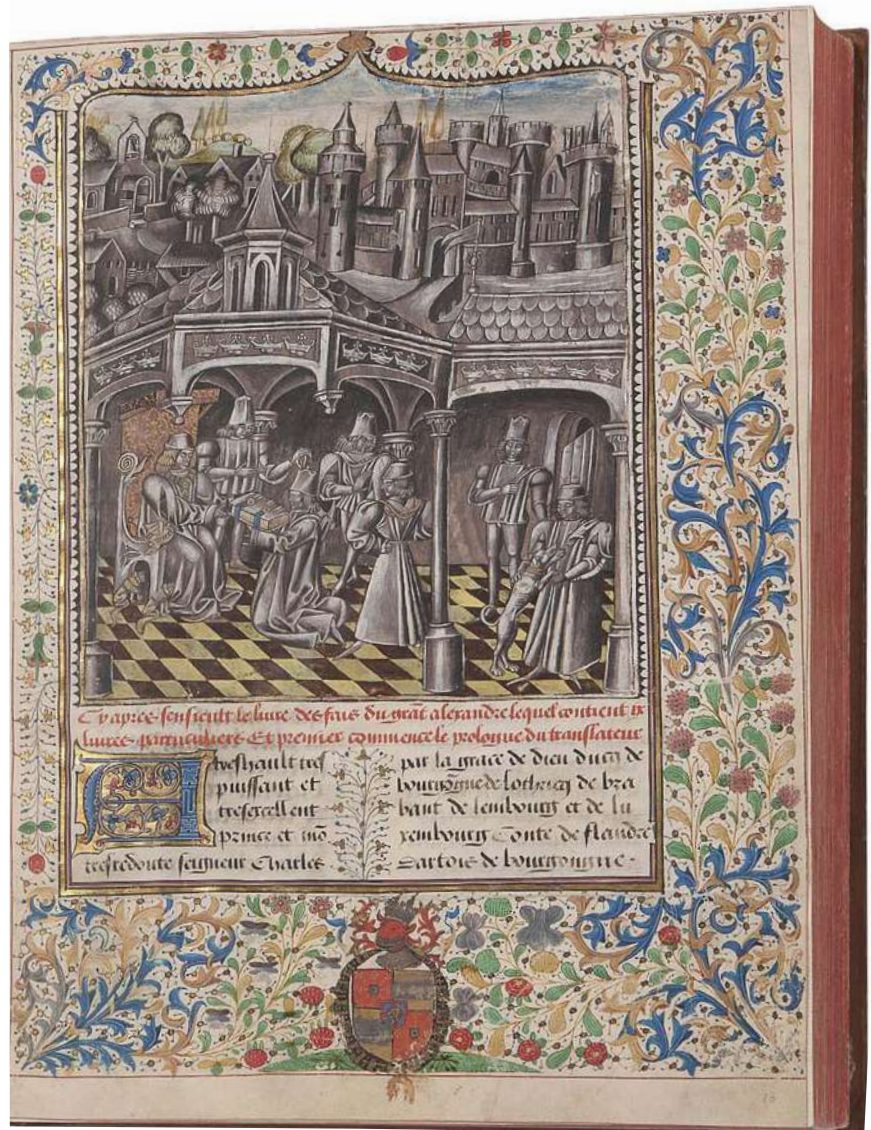 Cy apres sensieult le liure des fais du grāt alexandre lequel contient ix
liures particuliers Et premier commence le prologue du translateur
Treshault tres
puissant et
tresexcellent
prince et mō
tresredoute seigneur Charles
par la grace de dieu ducq de
bourgōgne de lothricq de bra
bant de lembourg et de lu
xembourg Conte de flandres
dartois de bourgongne